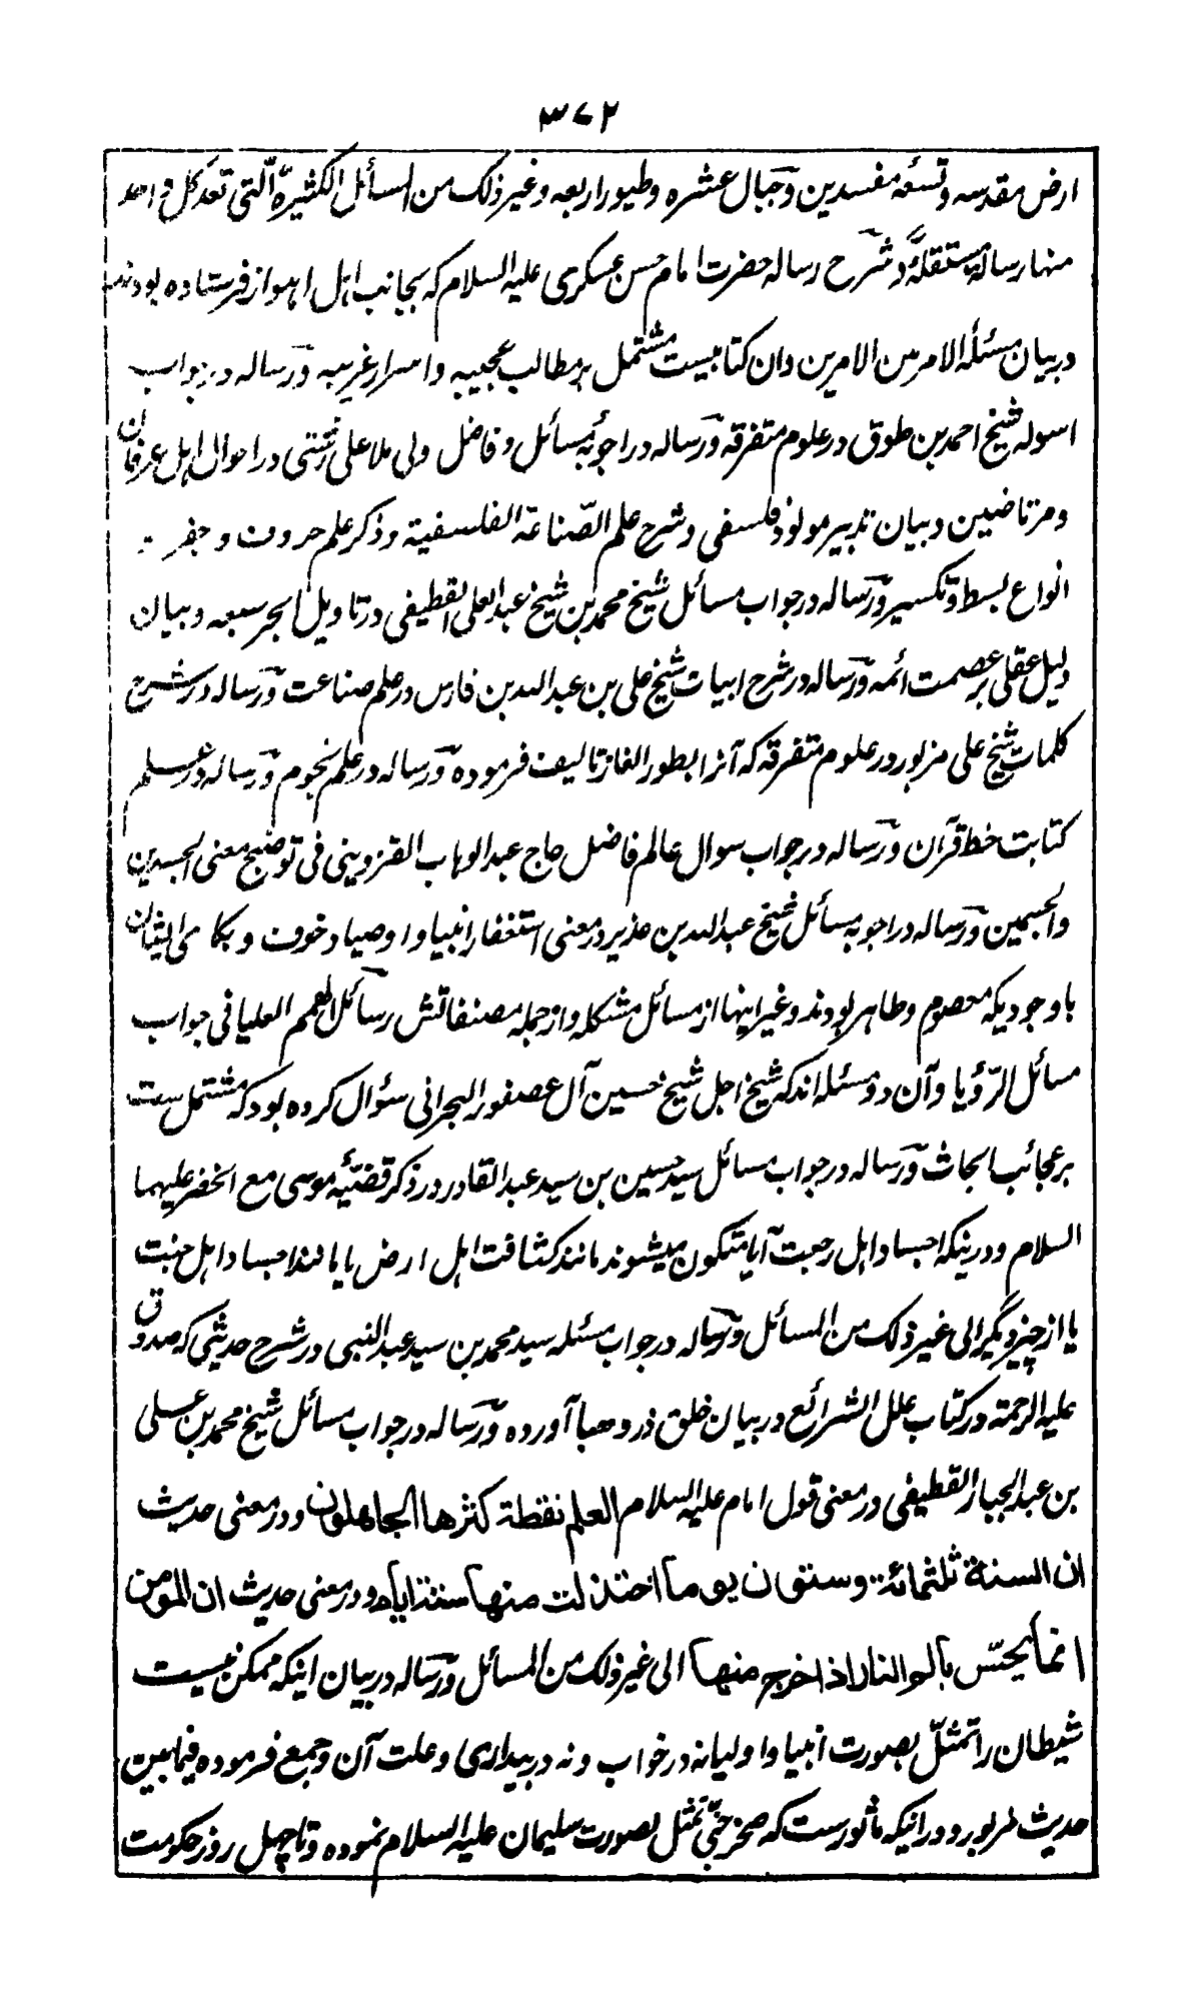 ۳۷۲
ارض مقدسه و تسعه مفسدین و جبال عشره و طیور اربعه و غیر ذلک من المسائل الکثیرة الّتی تعدّ کل واحد
منها رسالة مستقلّة و شرح رساله حضرت امام حسن عسکری علیه السلام که بجانب اهل اهواز فرستاده بودند
در بیان مسئله الامر بین الامرین و ان کتابیست مشتمل بر مطالب عجیبه و اسرار غریبه و رساله در جواب
اسوله شیخ احمد بن طوق در علوم متفرقه و رساله در اجوبهٔ مسائل و فاضل ولی ملا علی رشتی در احوال اهل عرفان
و مرتاضین و بیان تدبیر مولود فلسفی و شرح علم الصّناعة الفلسفیة و ذکر علم حروف و جفر
انواع بسط و تکسیر و رساله در جواب مسائل شیخ محمد بن شیخ عبد العلی القطیفی در تاویل ابحر سبعه و بیان
دلیل عقلی بر عصمت ائمه و رساله در شرح ابیات شیخ علی بن عبد الله بن فارس در علم صناعت و رساله در شرح
کلمات شیخ علی مزبور در علوم متفرقه که آنرا بطور الغاز تالیف فرموده و رساله در علم نجوم و رساله در علم
کتابت خط قرآن و رساله در جواب سوال عالم فاضل حاج عبد الوهاب القزوینی فی توضیح معنی الجسدین
والجسمین و رساله در اجوبه مسائل شیخ عبد الله بن غدیر در معنی استغفار انبیا و اوصیا و خوف و بکای ایشان
با وجودیکه معصوم و طاهر بودند و غیر اینها از مسائل مشکله و از جمله مصنفاتش رسائل الهمم العلیا فی جواب
مسائل الرّؤیا و آن دو مسئله اند که شیخ اجل شیخ حسین آل عصفور البحرانی سؤال کرده بود که مشتمل ست
بر عجائب ابحاث و رساله در جواب مسائل سید حسین بن سید عبد القادر در ذکر قضیّهٔ موسی مع الخضر علیهما
السلام و در اینکه اجساد اهل رجعت آیا متکون میشوند مانند کثافت اهل ارض یا مانند اجساد اهل جنت
یا از چیز دیگر الی غیر ذلک من المسائل و رساله در جواب مسئله سید محمد بن سید عبد النبی در شرح حدیثی که صدوق
علیه الرحمة در کتاب علل الشرائع در بیان خلق ذر و هبا آورده و رساله در جواب مسائل شیخ محمد بن علی
بن عبد الجبار القطیفی در معنی قول امام علیه السلام العلم نقطة کثرها الجاهلون و در معنی حدیث
ان السنة ثلثمائة وستون یوما اختزلت منها ستة ایام و در معنی حدیث ان المؤمن
انما یحسّ بالم النار اذا اخرج منها الی غیر ذلک من المسائل و رساله در بیان اینکه ممکن نیست
شیطان را تمثّل بصورت انبیا و اولیا نه در خواب و نه در بیداری و علت آن و جمع فرموده فیمابین
حدیث مزبور و در انیکه ماثورست که صخر جنّی تمثل بصورت سلیمان علیه السلام نموده و تا چهل روز حکومت